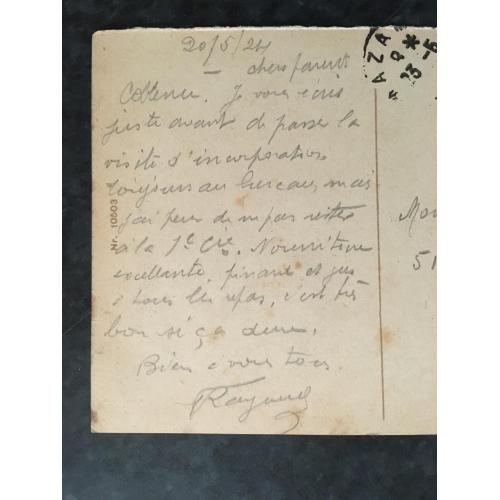 20/5/24
chers parents
Coblence. Je vous écris
juste avant de passer la
visite d'incorporation
toujours au bureau, mais
j'ai peur de ne pas rester
à la 1e Cie. Nourriture
excellente, pinard et jus
à tous les repas, c'est très
bon si ça dure.
Bien à vous tous.
Raymond
Nr. 10603
AZA
23-5
Mon
51